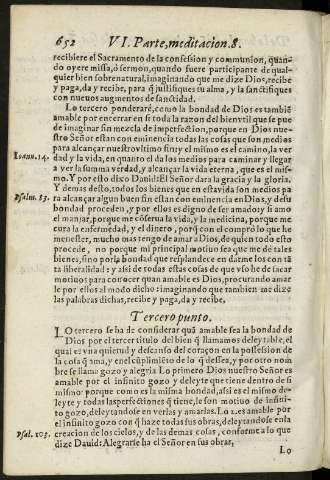 652 VI. Parte, meditacion. 8.
recibiere el Sacramento de la confession y communion, quan-
do oyere missa, ò sermon, quando fuere participante de qual-
quier bien sobrenatural. imaginando que me dize Dios, recibe
y paga, da y recibe, para q̃ justifiques su alma, y la sanctifiques
con nueuos augmentos de sanctidad.
Lo tercero ponderarè, como la bondad de Dios es tambiẽ
amable por encerrar en si toda la razon del bien vtil que se pue
de imaginar sin mezcla de imperfection, porque en Dios nues-
tro Señor estan con eminencia todas las cosas que son medios
para alcançar nuestro vltimo fin: y el mismo es el camino, la ver
Ioann. 14. dad y la vida, en quanto el da los medios para caminar y llegar
a ver la summa verdad, y alcançar la vida eterna, que es el mis-
mo. Y por esto dixo Dauid: El Señor dara la gracia y la gloria.
Y demas desto, todos los bienes que en esta vida son medios pa
Psalm. 83. ra alcançar algun buen fin estan con eminencia en Dios, y de su
bondad proceden, y por ellos es digno de ser amado: y si amo
el manjar, porque me cõserua la vida, y la medicina, porque me
cura la enfermedad, y el dinero, porq̃ con el compro lo que he
menester, mucho mas tengo de amar a Dios, de quien todo esto
procede, no porque mi principal motiuo sea que me de tales
bienes, sino por la bondad que resplandece en darme los con tã
ta liberalidad: y assi de todas estas cosas de que vso he de sacar
motiuos para conocer quan amable es Dios, procurando amar
le por ellos al modo dicho: imaginando que tambien me dize
las palabras dichas, recibe y paga, da y recibe.
Tercero punto.
LO tercero se ha de considerar quã amable sea la bondad de
Dios por el tercer titulo del bien q̃ llamamos deleytable, el
qual es vna quietud y descanso del coraçon en la possession de
la cosa q̃ ama, y en el cũplimiẽto de lo q̃ dessea, y por otro nom
bre se llama gozo y alegria. Lo primero Dios nuestro Señor es
amable por el infinito gozo y deleyte que tiene dentro de si
mismo: porque como es la misma bondad, assi es el mismo de-
leyte y todas las perfectiones q̃ tiene, le son motiuo de infini-
to gozo, deleytandose en verlas y amarlas. Lo 2. es amable por
el infinito gozo con q̃ haze todas sus obras, deleytandose en la
Psal. 103. creacion de los cielos, y de las demas cosas, conforme a lo que
dize Dauid: Alegrarse ha el Señor en sus obras,
Lo